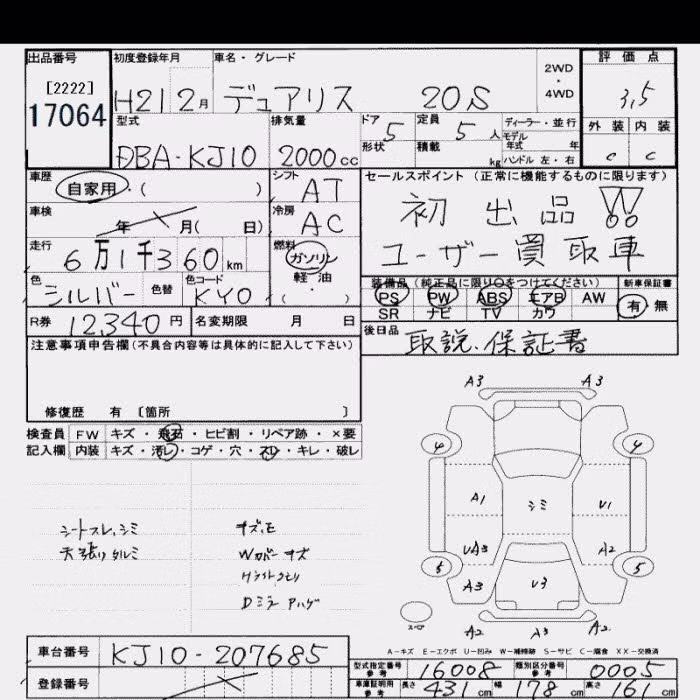 出品番号 初度登録年月 車名・グレード 2WD・4WD 評価点
[2222] 17064 H21 2月 デュアリス 20S 3,5
型式 排気量 ドア 5 定員 5人 ディーラー・並行 外装 内装
モデル年式 年
DBA-KJ10 2000cc 形状 積載 kg ハンドル 左・右 c c
車歴 自家用・( ) シフト AT セールスポイント(正常に機能するものに限ります)
車検 年 月( 日) 冷房 AC 初出品!!
走行 6万1千360km 燃料 ガソリン ユーザー買取車
軽・油
・( )
色 シルバー 色替 色コード KY0 装備品(純正品に限り○をつけてください) 新車保証書
PS PW ABS エアB AW 有・無
SR ナビ TV カワ
R券 12,340円 名変期限 月 日 後日品 取説.保証書
注意事項申告欄(不具合内容等は具体的に記入して下さい)
修復歴 有 [箇所 ]
検査員 FW キズ・飛石・ヒビ割・リペア跡・×要
記入欄 内装 キズ・汚レ・コゲ・穴・スレ・キレ・破レ
シートスレ、シミ
天張りタルミ
Wカバーキズ
Hライトクモリ
Dミラーハゲ
A3 A3
4 4
A1 シミ U1
UA3 A2
5 5
A3 U3
スペア
A2 A3 A2
A-キズ E-エクボ U-凹み W-補修跡 S-サビ C-腐食 XX-交換済
車台番号 KJ10-207685
登録番号
型式指定番号 参考 16008 類別区分番号 参考 0005
車庫証明用 参考 長さ 431cm 幅 178cm 高さ 161cm